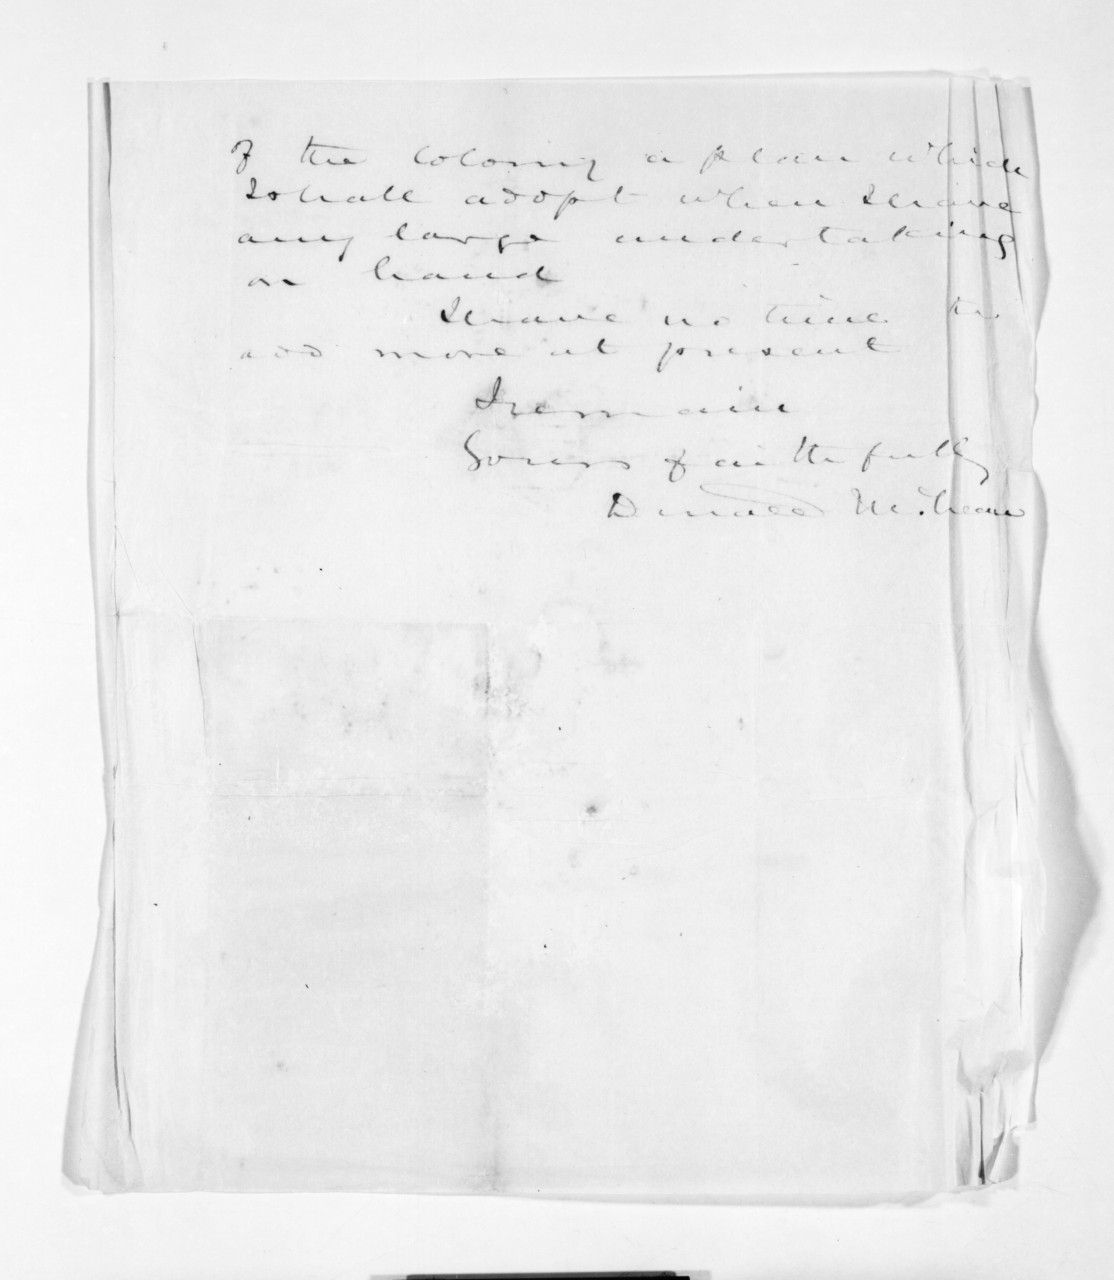 of the colony a plan which
I shall adopt when I have
any large undertaking
on hand
I have no time to
add more at present
I remain
Yours faithfully
Donald McLean